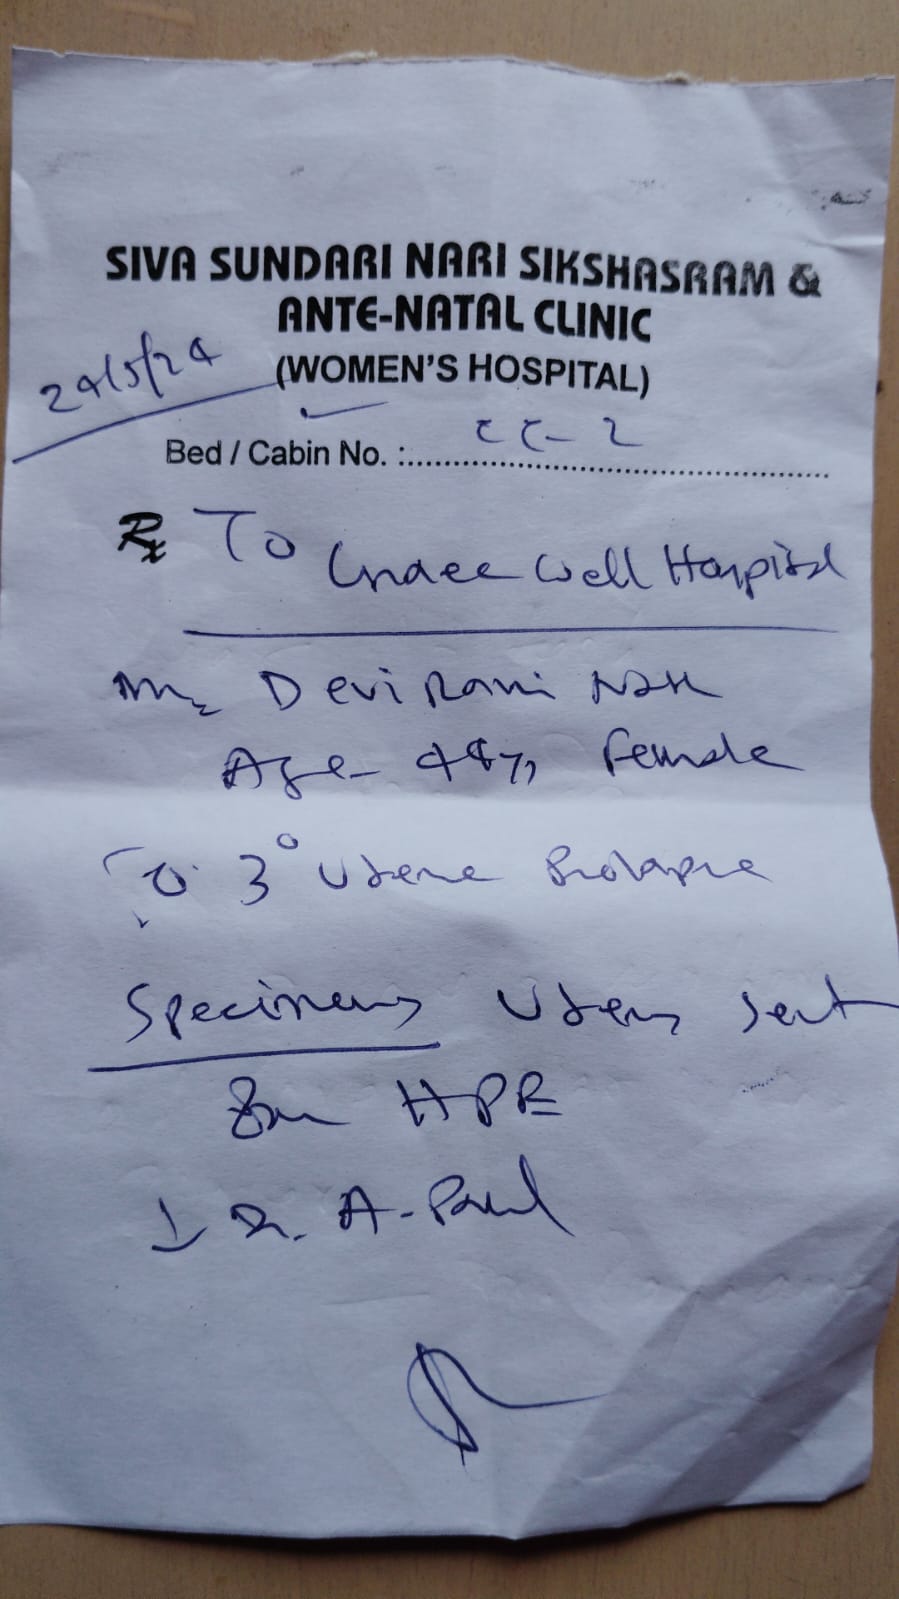 SIVA SUNDARI NARI SIKSHASRAM &
ANTE-NATAL CLINIC
(WOMEN'S HOSPITAL)
24/5/24
Bed / Cabin No. :.......... CC-2
Rx To
Grace Well Hospital
Devi Rani Nath
Age- 48y, Female
3° Uterine Prolapse
Specimens Uterus sent
for HPE
Dr. A. Paul